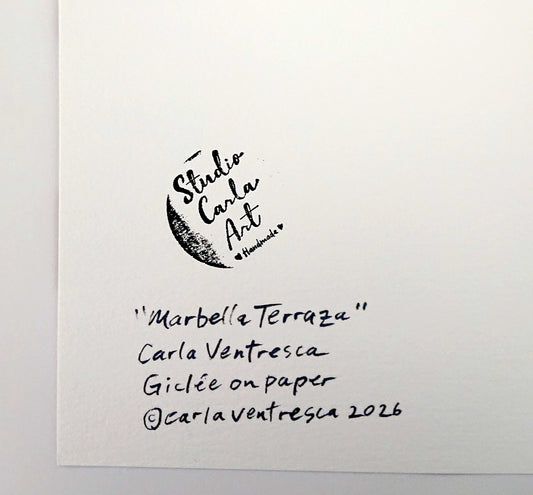 Studio
Carla
Art
♥Handmade♥
"Marbella Terraza"
Carla Ventresca
Giclée on paper
©carlaventresca 2026